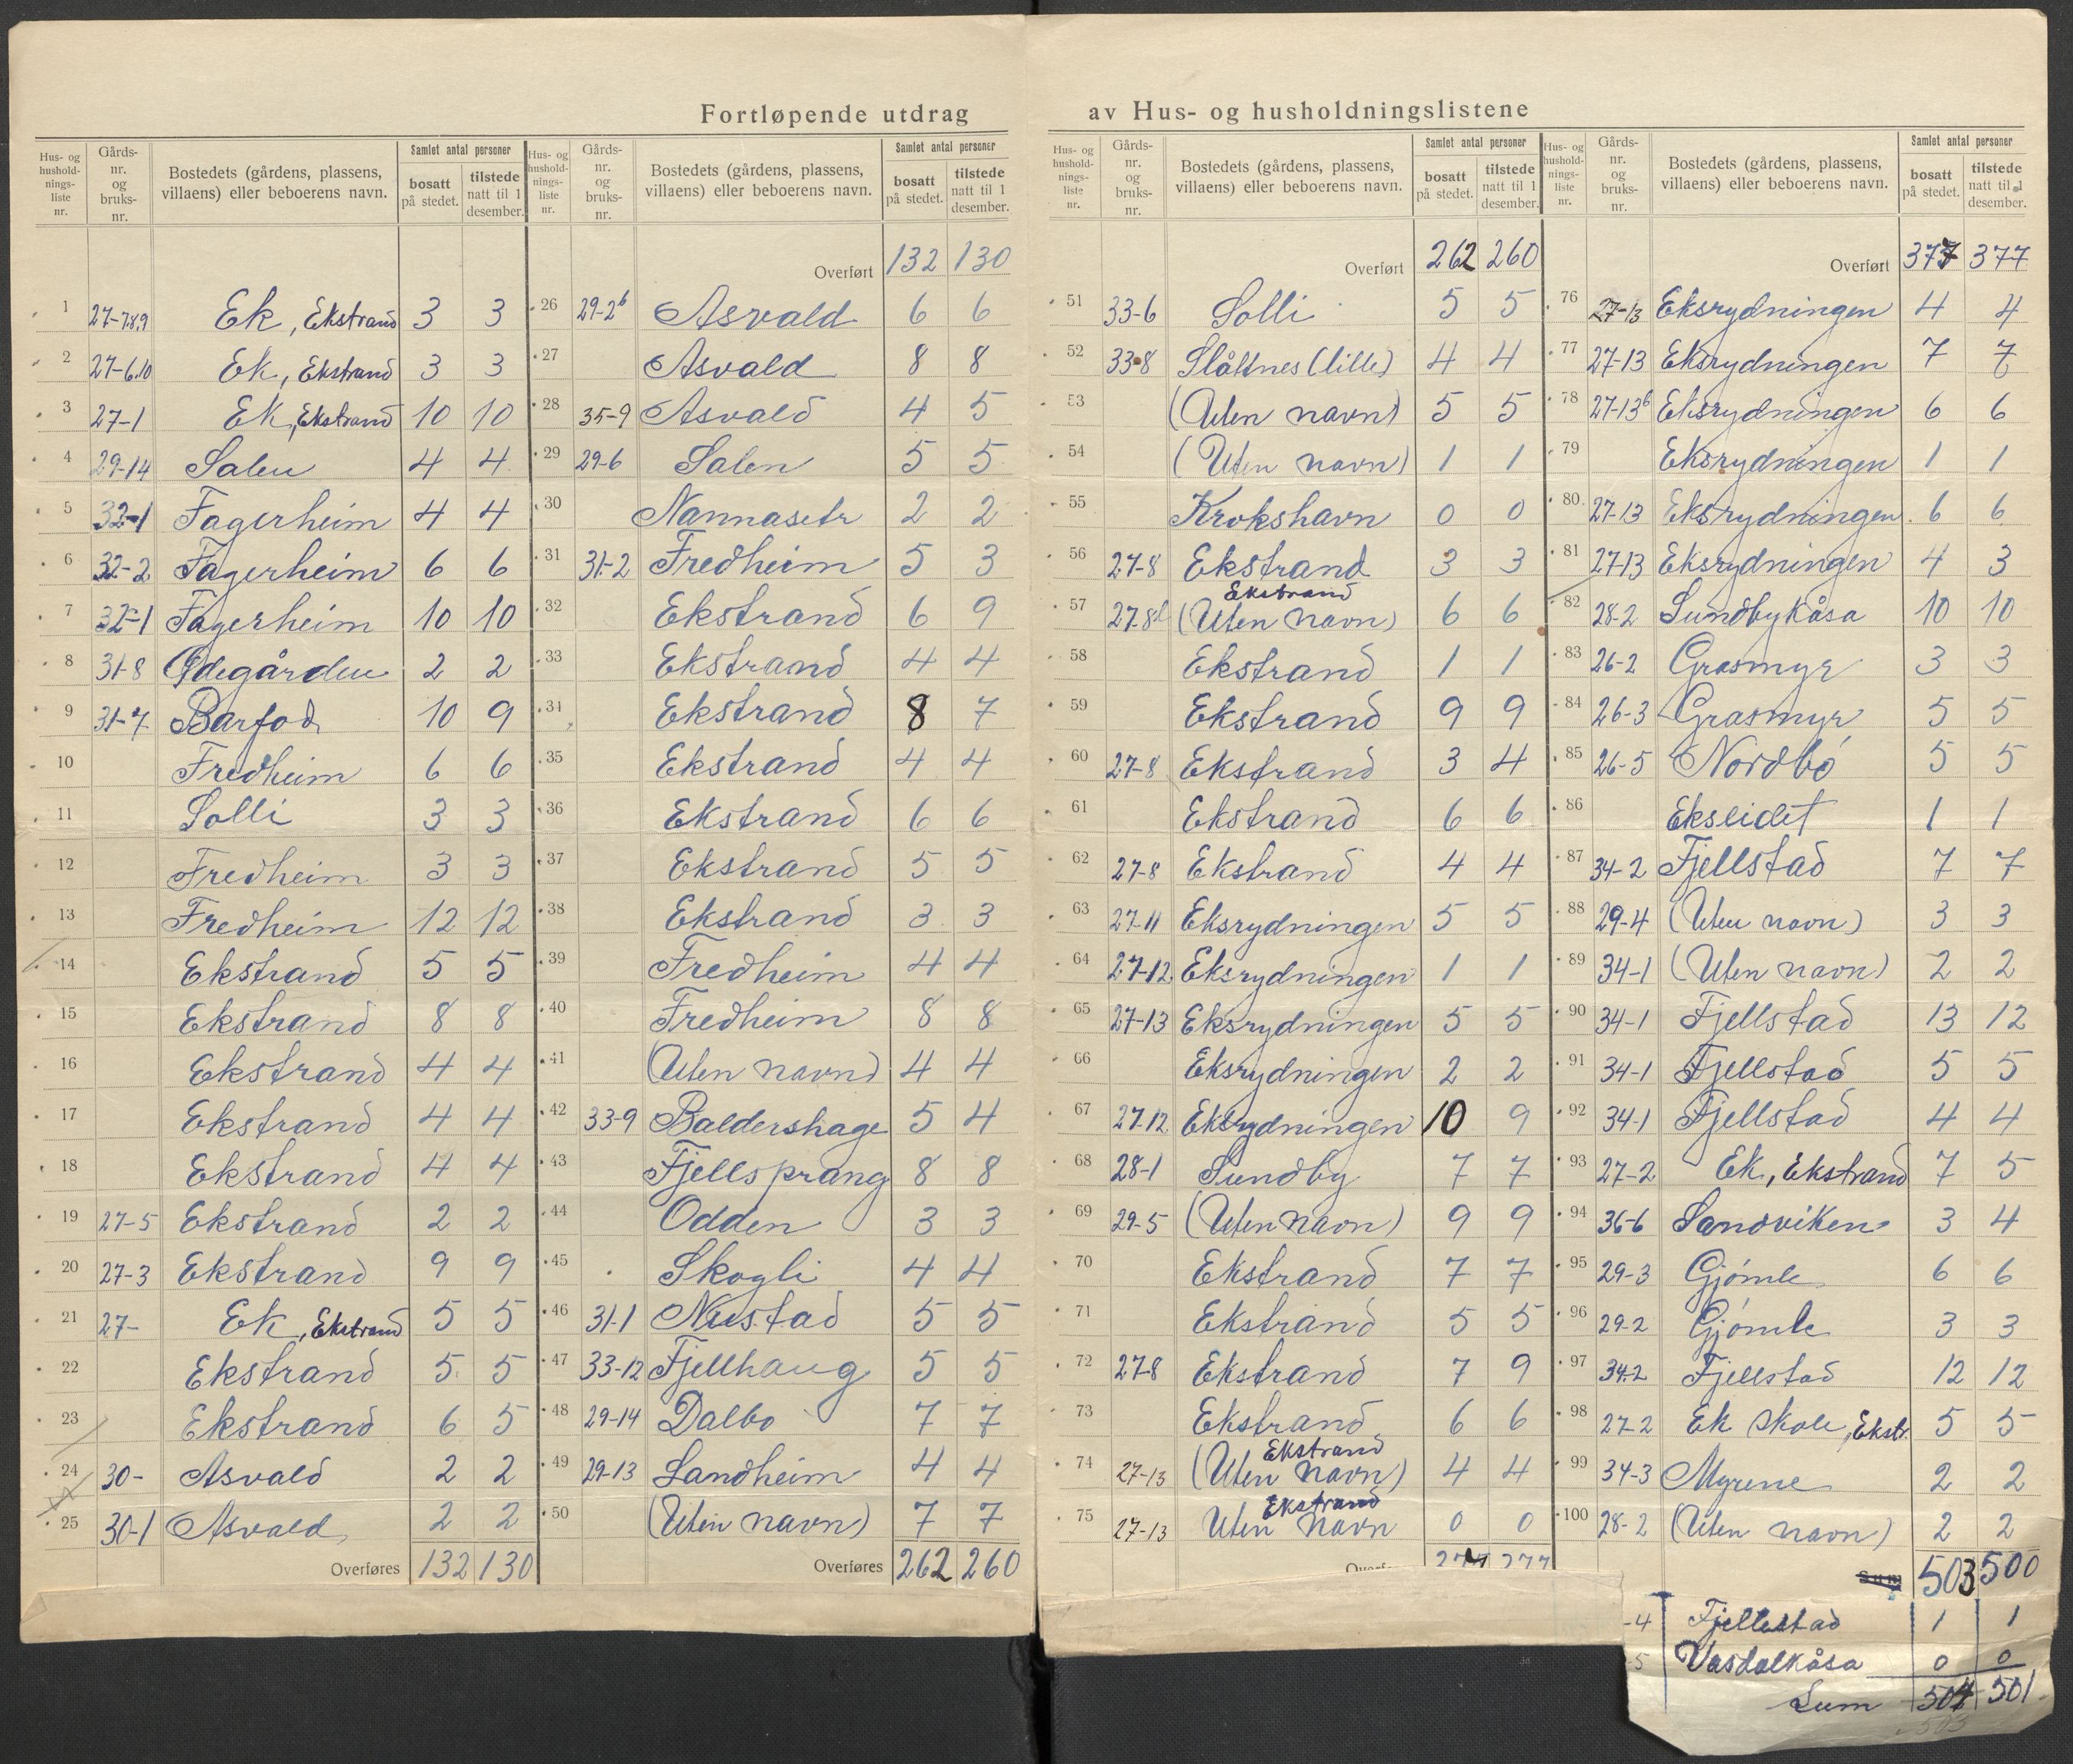 Fortløpende utdrag av Hus- og husholdningslistene
Hus- og husholdnings-liste nr. | Gårds-nr. og bruks-nr. | Bostedets (gårdens, plassens, villaens) eller beboerens navn. | Samlet antal personer | bosatt på stedet. | tilstede natt til 1 desember.
1 27-7.8.9 Ek, Ekstrand 3 3
2 27-6.10 Ek, Ekstrand 3 3
3 27-1 Ek, Ekstrand 10 10
4 29-14 Salen 4 4
5 32-1 Fagerheim 4 4
6 32-2 Fagerheim 6 6
7 32-1 Fagerheim 10 10
8 31-8 Ødegården 2 2
9 31-7 Barfod 10 9
10 Fredheim 6 6
11 Solli 3 3
12 Fredheim 3 3
13 Fredheim 12 12
14 Ekstrand 5 5
15 Ekstrand 8 8
16 Ekstrand 4 4
17 Ekstrand 4 4
18 Ekstrand 4 4
19 27-5 Ekstrand 2 2
20 27-3 Ekstrand 9 9
21 27- Ek, Ekstrand 5 5
22 Ekstrand 5 5
23 Ekstrand 6 5
24 30- Asvald 2 2
25 30-1 Asvald 2 2
Overføres 132 130
Hus- og husholdnings-liste nr. | Gårds-nr. og bruks-nr. | Bostedets (gårdens, plassens, villaens) eller beboerens navn. | Samlet antal personer | bosatt på stedet. | tilstede natt til 1 desember.
Overført 132 130
26 29-2b Asvald 6 6
27 Asvald 8 8
28 35-9 Asvald 4 5
29 29-6 Salen 5 5
30 Nannasetr 2 2
31 31-2 Fredheim 5 3
32 Ekstrand 6 9
33 Ekstrand 4 4
34 Ekstrand 8 7
35 Ekstrand 4 4
36 Ekstrand 6 6
37 Ekstrand 5 5
38 Ekstrand 3 3
39 Fredheim 4 4
40 Fredheim 8 8
41 (Uten navn) 4 4
42 33-9 Baldershage 5 4
43 Fjellsprang 8 8
44 Odden 3 3
45 Skogli 4 4
46 31-1 Nustad 5 5
47 33-12 Fjellhaug 5 5
48 29-14 Dalbo 7 7
49 29-13 Landheim 4 4
50 (Uten navn) 7 7
Overføres 262 260
Hus- og hushold-nings-liste nr. | Gårds-nr. og bruks-nr. | Bostedets (gårdens, plassens, villaens) eller beboerens navn. | Samlet antal personer | bosatt på stedet. | tilstede natt til 1 desember.
Overført 262 260
51 33-6 Solli 5 5
52 33-8 Slåttnes (lille) 4 4
53 (Uten navn) 5 5
54 (Uten navn) 1 1
55 Krokshavn 0 0
56 27-8 Ekstrand 3 3
57 27-8 (Uten navn) Ekstrand 6 6
58 Ekstrand 1 1
59 Ekstrand 9 9
60 27-8 Ekstrand 3 4
61 Ekstrand 6 6
62 27-8 Ekstrand 4 4
63 27-11 Eksrydningen 5 5
64 27-12 Eksrydningen 1 1
65 27-13 Eksrydningen 5 5
66 Eksrydningen 2 2
67 27-12 Eksrydningen 10 9
68 28-1 Sundby 7 7
69 29-5 (Uten navn) 9 9
70 Ekstrand 7 7
71 Ekstrand 5 5
72 27-8 Ekstrand 7 9
73 Ekstrand 6 6
74 27-13 (Uten navn) Ekstrand 4 4
75 27-13 Uten navn Ekstrand 0 0
377 377
Hus- og hushold-nings-liste nr. | Gårds-nr. og bruks-nr. | Bostedets (gårdens, plassens, villaens) eller beboerens navn. | Samlet antal personer | bosatt på stedet. | tilstede natt til 1 desember.
Overført 377 377
76 27-13 Eksrydningen 4 4
77 27-13 Eksrydningen 7 7
78 27-13b Eksrydningen 6 6
79 Eksrydningen 1 1
80 27-13 Eksrydningen 6 6
81 27-13 Eksrydningen 4 3
82 28-2 Sundbykåsa 10 10
83 26-2 Grasmyr 3 3
84 26-3 Grasmyr 5 5
85 26-5 Nordbö 5 5
86 Ekseidet 1 1
87 34-2 Fjellstad 7 7
88 29-4 (Uten navn) 3 3
89 34-1 (Uten navn) 2 2
90 34-1 Fjellstad 13 12
91 34-1 Fjellstad 5 5
92 34-1 Fjellstad 4 4
93 27-2 Ek, Ekstrand 7 5
94 36-6 Sandviken 3 4
95 29-3 Gjömle 6 6
96 29-2 Gjömle 3 3
97 34-2 Fjellstad 12 12
98 27-2 Ek skole, Ekstr. 5 5
99 34-3 Myrene 2 2
100 28-2 (Uten navn) 2 2
Sum 503 500
-4 Fjellestad 1 1
-5 Vasdalkåsa 0 0
Sum 504 501
503